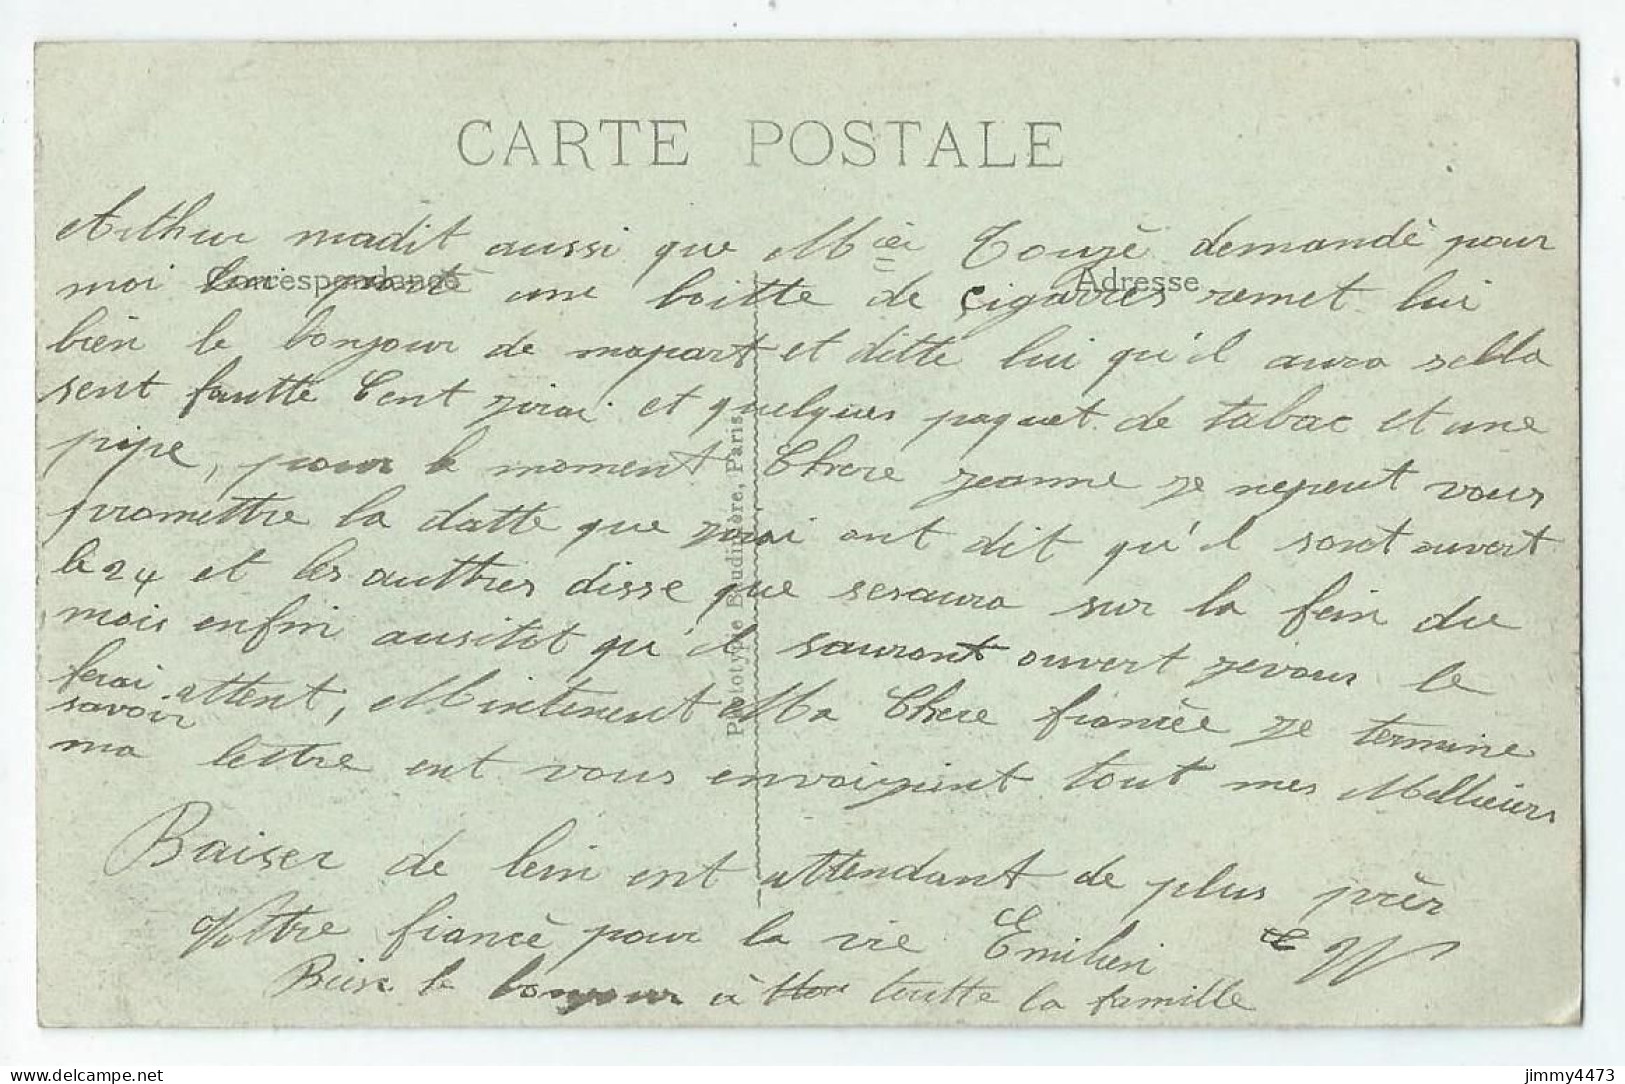 CARTE POSTALE
Correspondance
Adresse
Arthur madit aussi que Mier Touzé demandé pour
moi lui porté une boitte de çigarres remet lui
bien le bonjour de mapart et ditte lui qu'il aura sella
sent fautte Cent zirai et quelques paquet de tabac et une
pipe, pour le moment Chere Jeanne je nepeut vous
promettre la datte que zirai ont dit qu'il soret ouvert
le 24 et les auttres disse que sesaura sur la fein du
mois enfin ausitot qu'il sauront ouvert jevous le
ferai savoir attent, Mintenent Ma Chere fiancée je termine
ma lettre ent vous envoizent tout mes Mellieurs
Baiser de lein ent attendant de plus prèr
Vottre fiancé pour la vie Emilien E W
Bien le bonjour à toutte la famille
Phototype Baudinière, Paris
jimmy4473